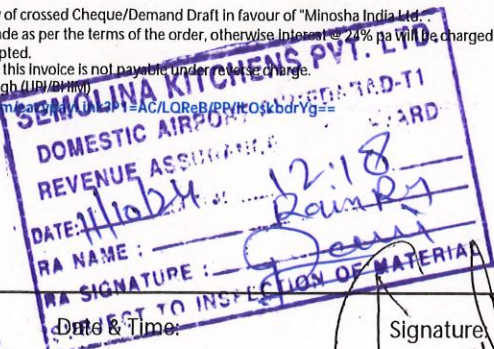 y of crossed Cheque/Demand Draft in favour of "Minosha India Ltd.".
de as per the terms of the order, otherwise interest @ 24% pa will be charged
pted.
this invoice is not payable under reverse charge.
gh (UPI/BHIM)
SEMOLINA KITCHENS PVT. LTD.
DOMESTIC AIRPORT -T1
REVENUE ASSU ARD
DATE: 11/10/24 12:18
RA NAME :
RA SIGNATURE :
SUBJECT TO INSPECTION OF MATERIAL
Date & Time: Signature